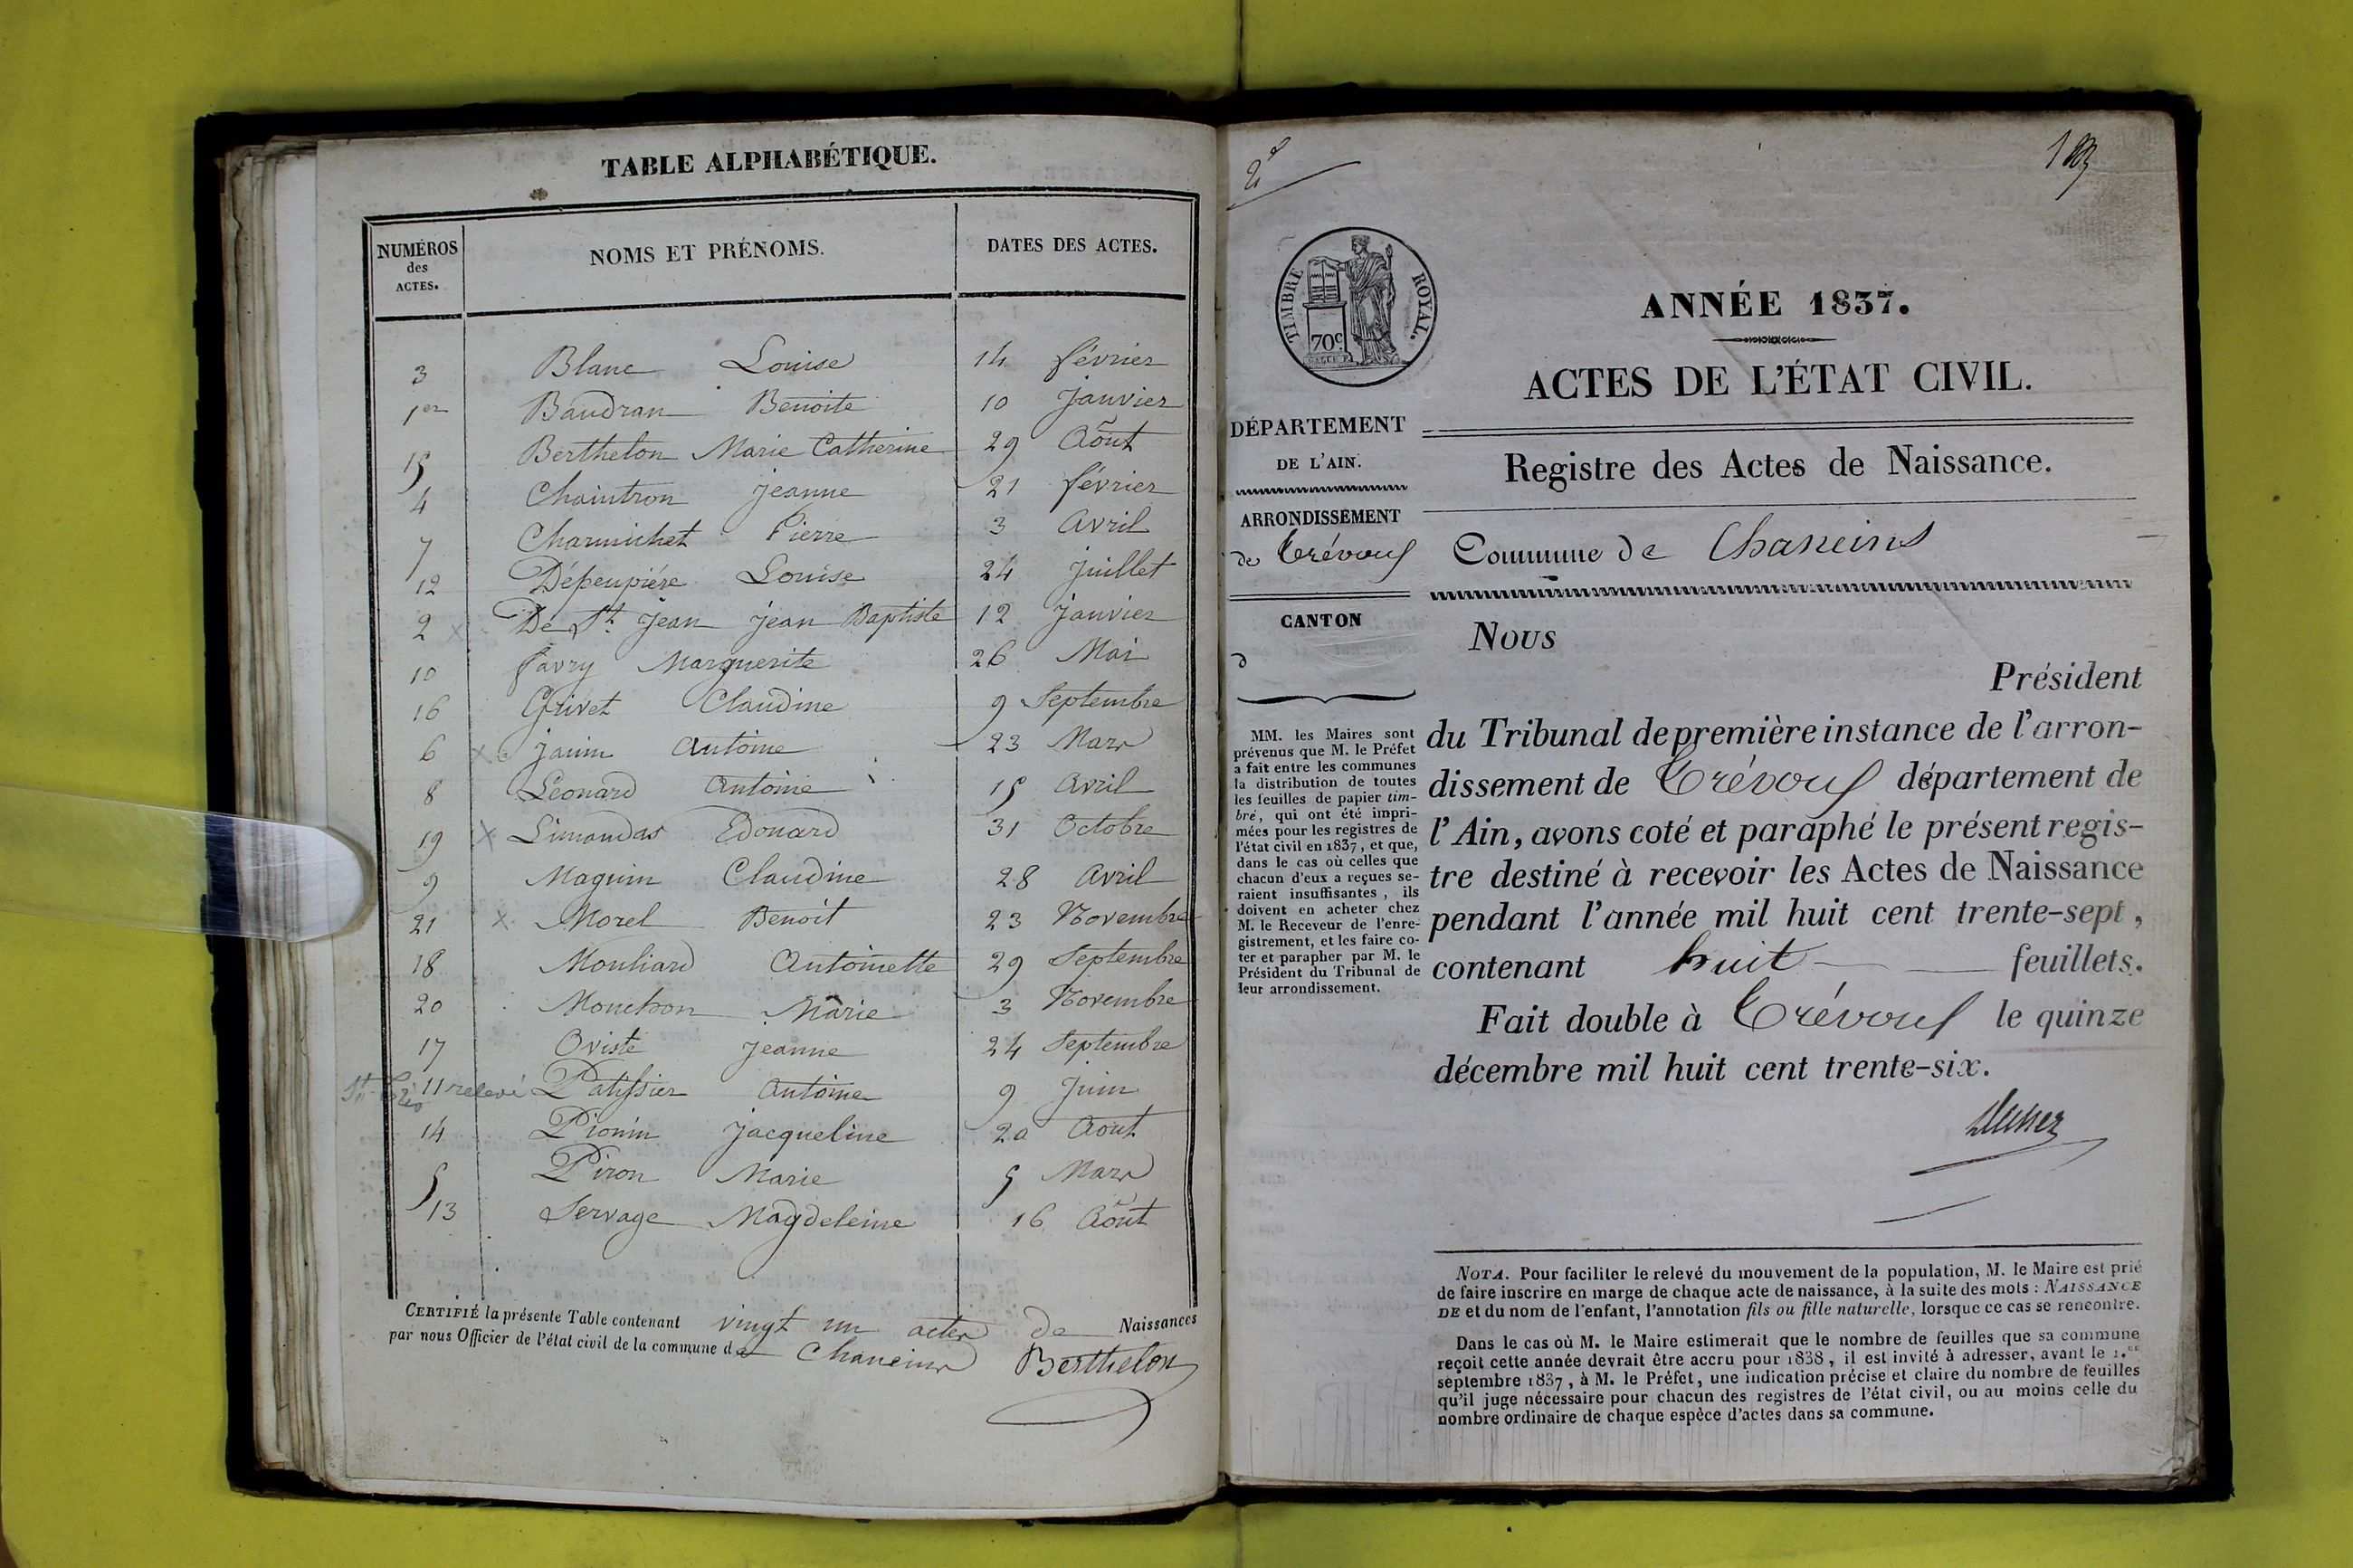 TABLE ALPHABÉTIQUE.
NUMÉROS des ACTES. NOMS ET PRÉNOMS. DATES DES ACTES.
3 Blanc Louise 14 février
1er Baudran Benoite 10 Janvier
15 Berthelon Marie Catherine 29 Août
4 Chaintron Jeanne 21 février
7 Charmichet Pierre 3 Avril
12 Dépeupiére Louise 24 Juillet
2 x De St Jean Jean Baptiste 12 Janvier
10 favry Marguerite 26 Mai
16 Grivet Claudine 9 Septembre
6 x Janin Antoine 23 Mars
8 Léonard Antoine 15 Avril
19 x Limandas Edouard 31 Octobre
9 Maguin Claudine 28 Avril
21 x Morel Benoit 23 Novembre
18 Mouliard Antoinette 29 Septembre
20 Mouchon Marie 3 Novembre
17 Oviste Jeanne 24 Septembre
11 relevé Patissier Antoine 9 Juin
14 Pionin Jacqueline 20 Aout
5 Piron Marie 5 Mars
13 Servage Magdeleine 16 Août
CERTIFIÉ la présente Table contenant vingt un actes de Naissances
par nous Officier de l'état civil de la commune de Chaneins Berthelon
2e
TIMBRE ROYAL.
70c.
ANNÉE 1837.
ACTES DE L'ÉTAT CIVIL.
DÉPARTEMENT
DE L'AIN.
ARRONDISSEMENT
de Trévoux
CANTON
d
MM. les Maires sont
prévenus que M. le Préfet
a fait entre les communes
la distribution de toutes
les feuilles de papier tim-
bré, qui ont été impri-
mées pour les registres de
l'état civil en 1837, et que,
dans le cas où celles que
chacun d'eux a reçues se-
raient insuffisantes, ils
doivent en acheter chez
M. le Receveur de l'enre-
gistrement, et les faire co-
ter et parapher par M. le
Président du Tribunal de
leur arrondissement.
Registre des Actes de Naissance.
Commune de Chaneins
Nous
Président
du Tribunal de première instance de l'arron-
dissement de Trévoux département de
l'Ain, avons coté et paraphé le présent regis-
tre destiné à recevoir les Actes de Naissance
pendant l'année mil huit cent trente-sept,
contenant huit feuillets.
Fait double à Trévoux le quinze
décembre mil huit cent trente-six.
NOTA. Pour faciliter le relevé du mouvement de la population, M. le Maire est prié
de faire inscrire en marge de chaque acte de naissance, à la suite des mots : NAISSANCE
DE et du nom de l'enfant, l'annotation fils ou fille naturelle, lorsque ce cas se rencontre.
Dans le cas où M. le Maire estimerait que le nombre de feuilles que sa commune
reçoit cette année devrait être accru pour 1838, il est invité à adresser, avant le 1.er
septembre 1837, à M. le Préfet, une indication précise et claire du nombre de feuilles
qu'il juge nécessaire pour chacun des registres de l'état civil, ou au moins celle du
nombre ordinaire de chaque espèce d'actes dans sa commune.